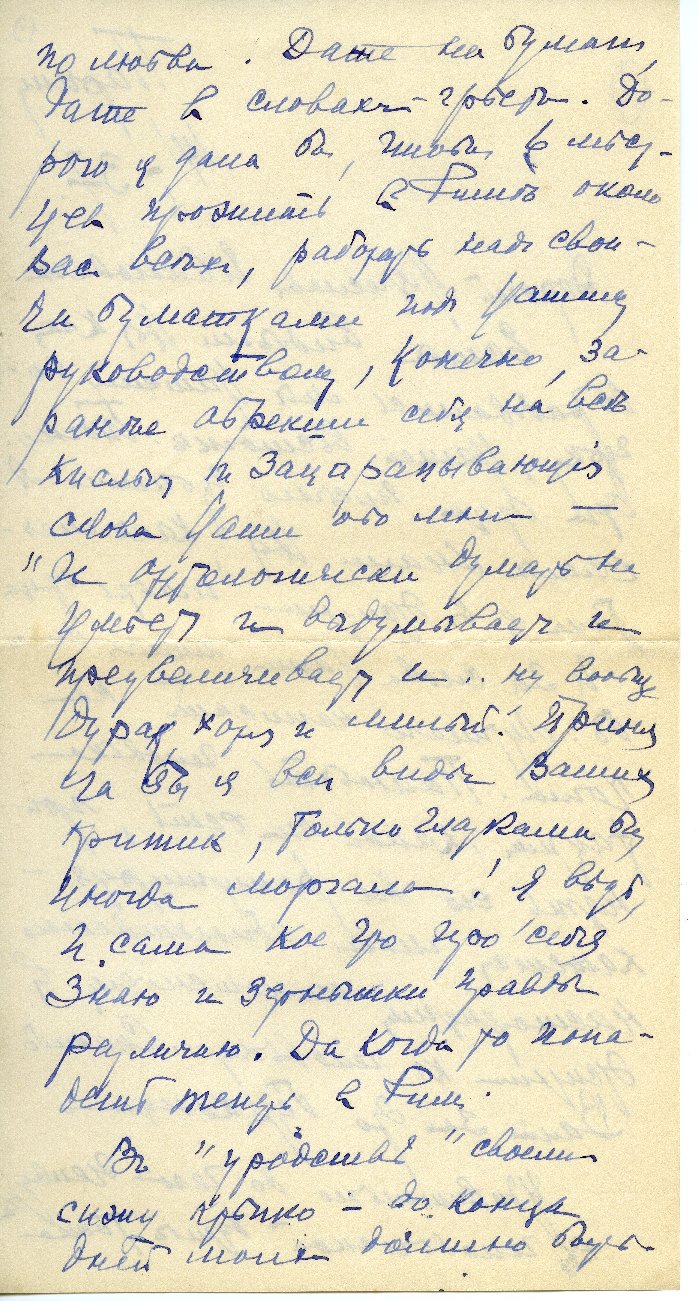 по любви. Даже на бумаги,
даже в словахъ грѣетъ. До-
рого я дала бы, чтобы 6 мѣся-
цев прожить в Римѣ около
вас всѣхъ, работать надъ свои-
ми бумажками под Вашим
руководством, конечно, за-
ранѣе обрекши себя на всѣ
кислыя и зацарапывающiя
слова Ваши обо мнѣ —
"И онтологически думать не
умѣет и выдумывает и
преувеличивает и.. ну вообще
дурак, хотя и милый". Приня-
ла бы я всѣ виды Ваших
критик, только глазками бы
иногда моргала! Я вѣдь
и сама кое что про себя
знаю и зернышки правды
различаю. Да когда то попа-
дешь теперь в Рим.
Въ "уродствѣ" своем
сижу крѣпко – до конца
дней моих должно быть.